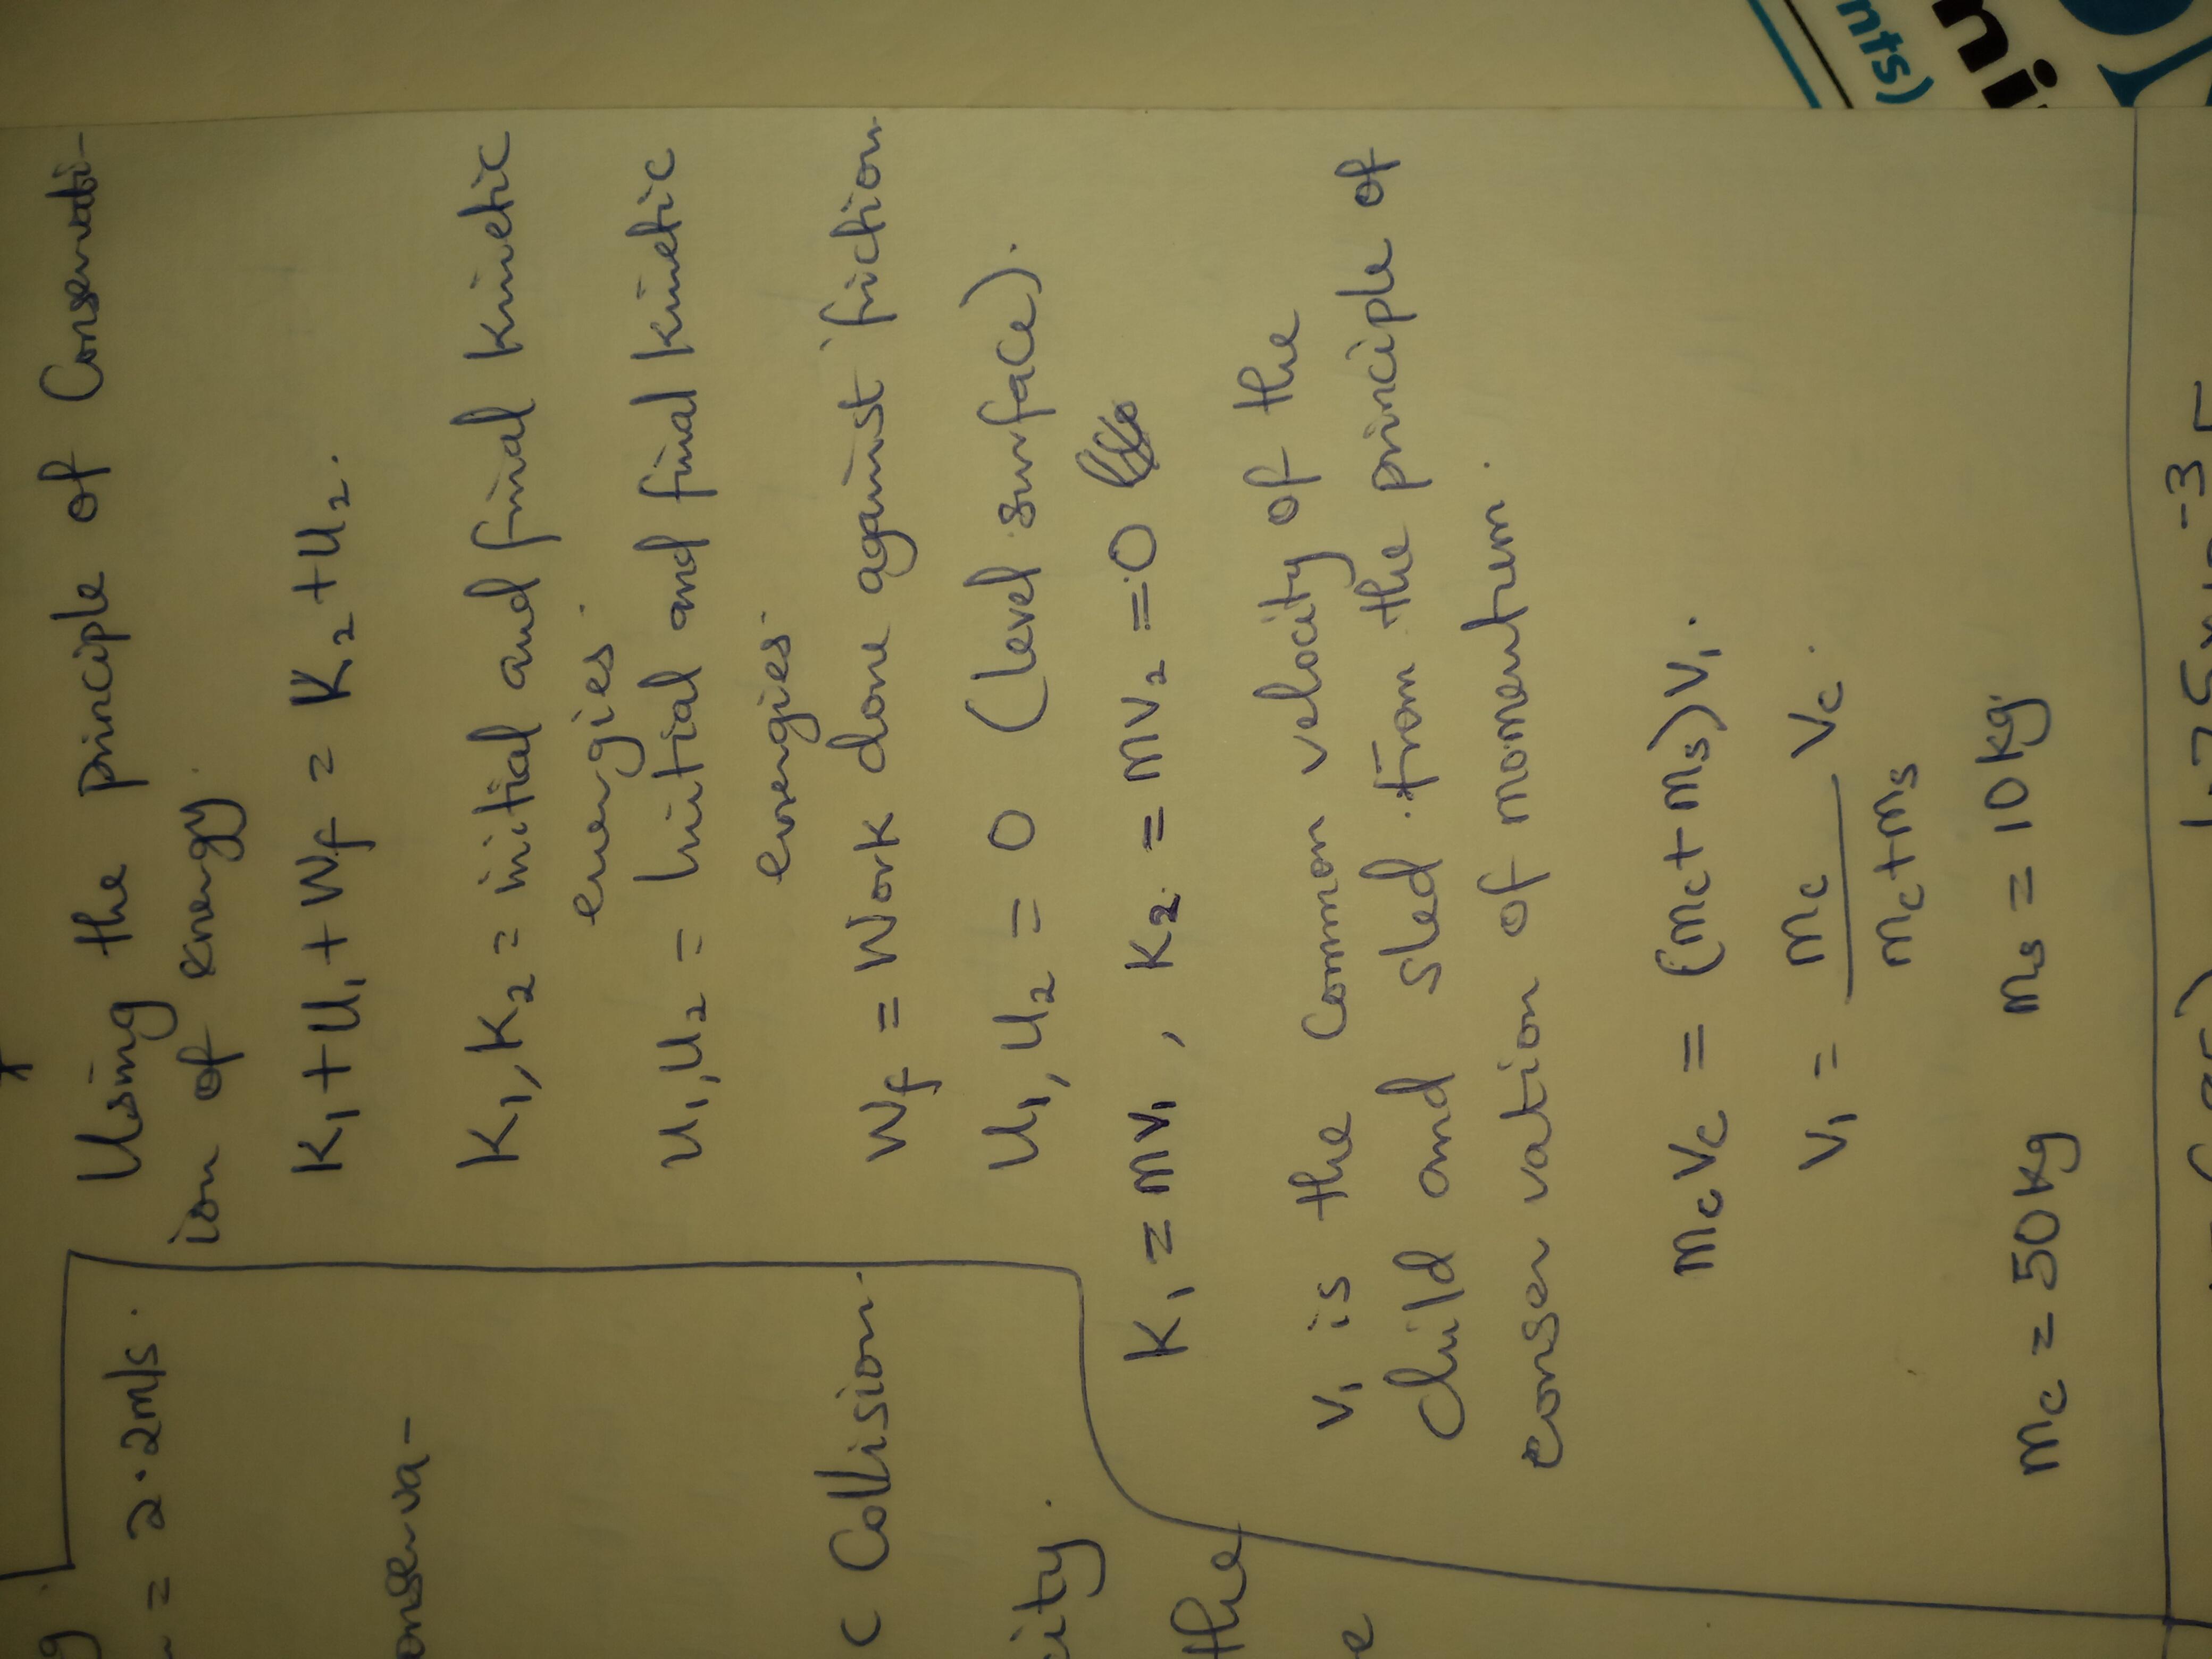 Using the principle of Conservati-
ion of energy.
K₁ + U₁ + Wf = K₂ + U₂.
K₁, K₂ = initial and final kinetic
energies.
U₁, U₂ = Initial and final kinetic
energies.
Wf = Work done against friction
U₁, U₂ = 0 (level surface).
K₁ = mv₁, K₂ = mv₂ = 0
v₁ is the common velocity of the
child and sled from the principle of
conservation of momentum.
mcvc = (mc + ms)v₁.
v₁ = mc/(mc + ms) vc.
mc = 50kg ms = 10kg.
= 2.2m/s.
onserva-
c Collision.
ity.
the
e
nts)
ni